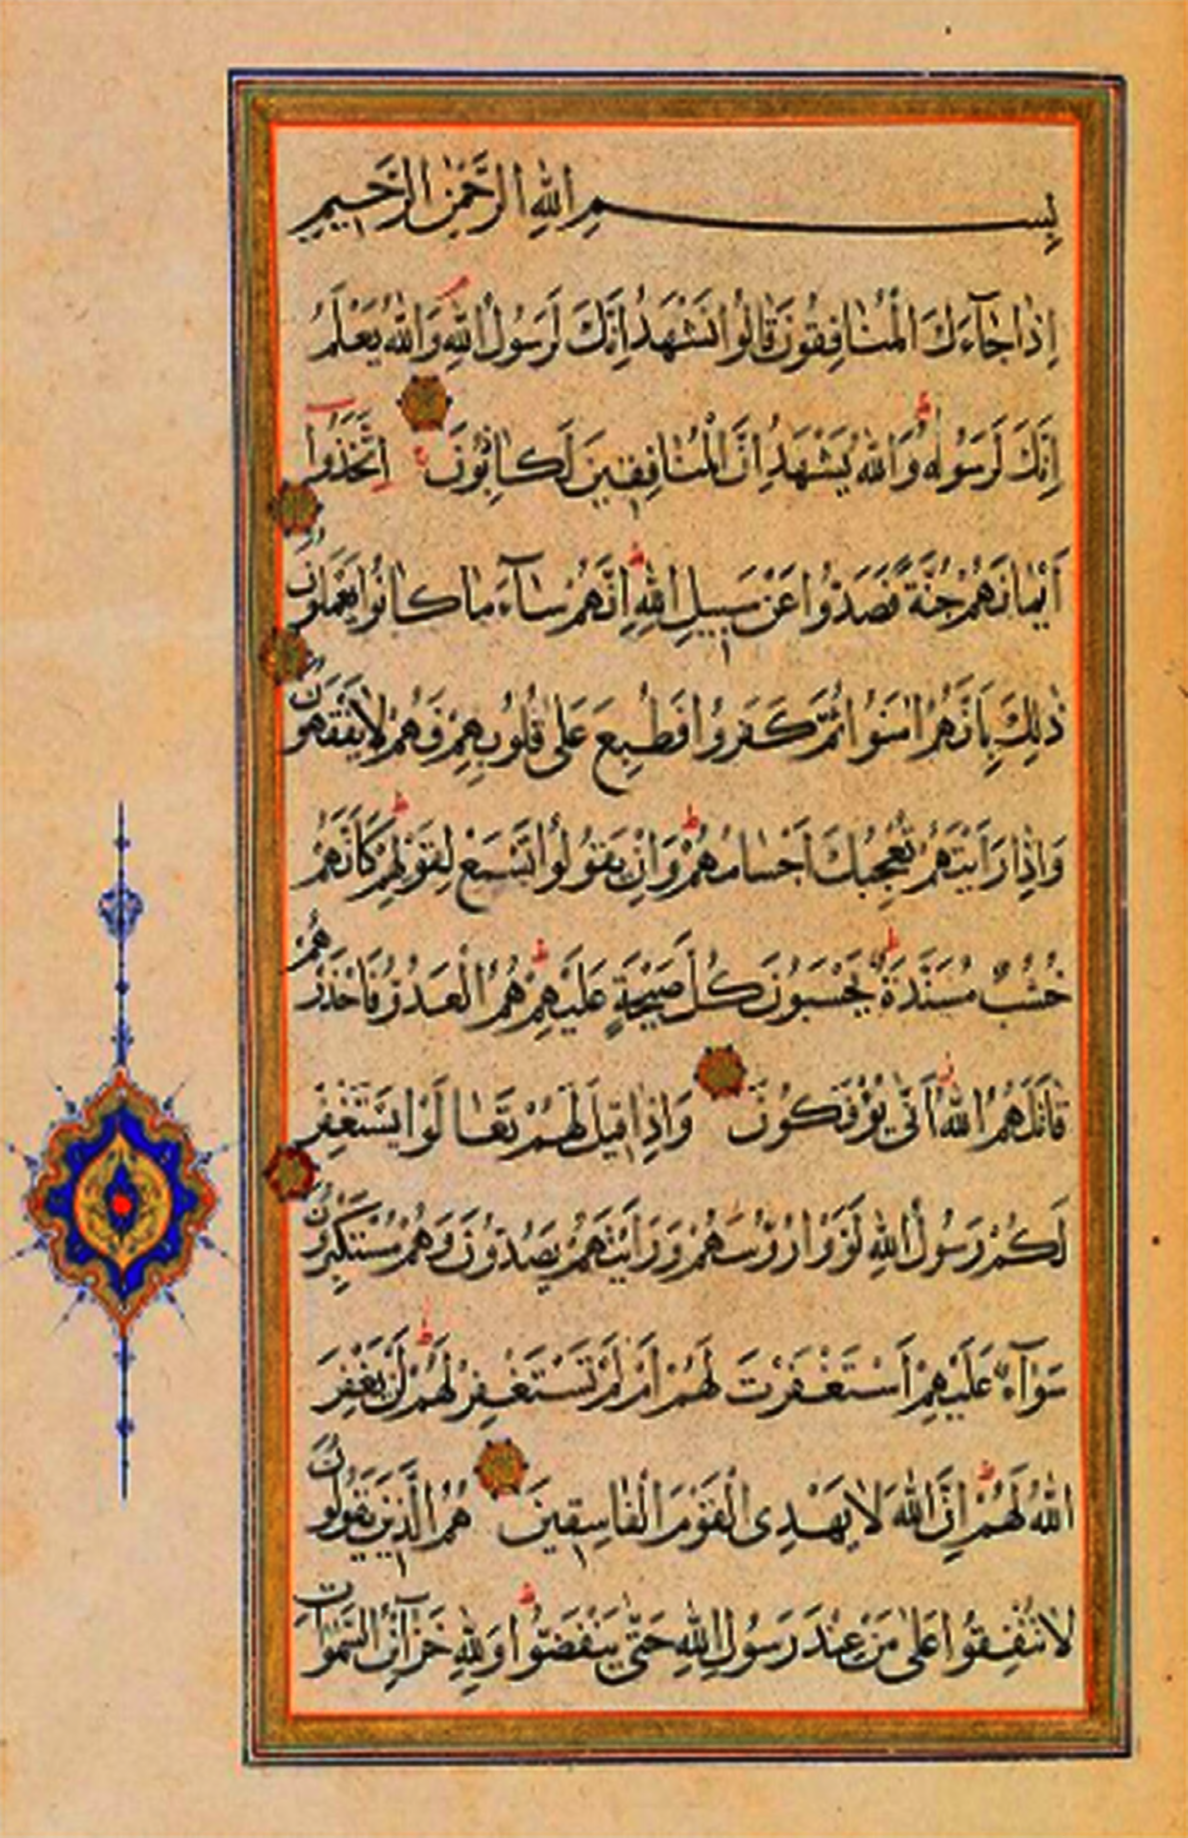 بِسْمِ اللهِ الرَّحْمٰنِ الرَّحِيمِ
اِذَا جَآءَكَ الْمُنَافِقُونَ قَالُوا نَشْهَدُ اِنَّكَ لَرَسُولُ اللهِ وَاللهُ يَعْلَمُ
اِنَّكَ لَرَسُولُهُ وَاللهُ يَشْهَدُ اِنَّ الْمُنَافِقِينَ لَكَاذِبُونَ اِتَّخَذُوا
اَيْمَانَهُمْ جُنَّةً فَصَدُّوا عَنْ سَبِيلِ اللهِ اِنَّهُمْ سَآءَ مَا كَانُوا يَعْمَلُونَ
ذٰلِكَ بِاَنَّهُمْ اٰمَنُوا ثُمَّ كَفَرُوا فَطُبِعَ عَلٰى قُلُوبِهِمْ فَهُمْ لَا يَفْقَهُونَ
وَاِذَا رَاَيْتَهُمْ تُعْجِبُكَ اَجْسَامُهُمْ وَاِنْ يَقُولُوا تَسْمَعْ لِقَوْلِهِمْ كَاَنَّهُمْ
خُشُبٌ مُسَنَّدَةٌ يَحْسَبُونَ كُلَّ صَيْحَةٍ عَلَيْهِمْ هُمُ الْعَدُوُّ فَاحْذَرْهُمْ
قَاتَلَهُمُ اللهُ اَنّٰى يُؤْفَكُونَ وَاِذَا قِيلَ لَهُمْ تَعَالَوْا يَسْتَغْفِرْ
لَكُمْ رَسُولُ اللهِ لَوَّوْا رُؤُسَهُمْ وَرَاَيْتَهُمْ يَصُدُّونَ وَهُمْ مُسْتَكْبِرُونَ
سَوَآءٌ عَلَيْهِمْ اَسْتَغْفَرْتَ لَهُمْ اَمْ لَمْ تَسْتَغْفِرْ لَهُمْ لَنْ يَغْفِرَ
اللهُ لَهُمْ اِنَّ اللهَ لَا يَهْدِى الْقَوْمَ الْفَاسِقِينَ هُمُ الَّذِينَ يَقُولُونَ
لَا تُنْفِقُوا عَلٰى مَنْ عِنْدَ رَسُولِ اللهِ حَتّٰى يَنْفَضُّوا وَلِلّٰهِ خَزَآئِنُ السَّمٰوَاتِ